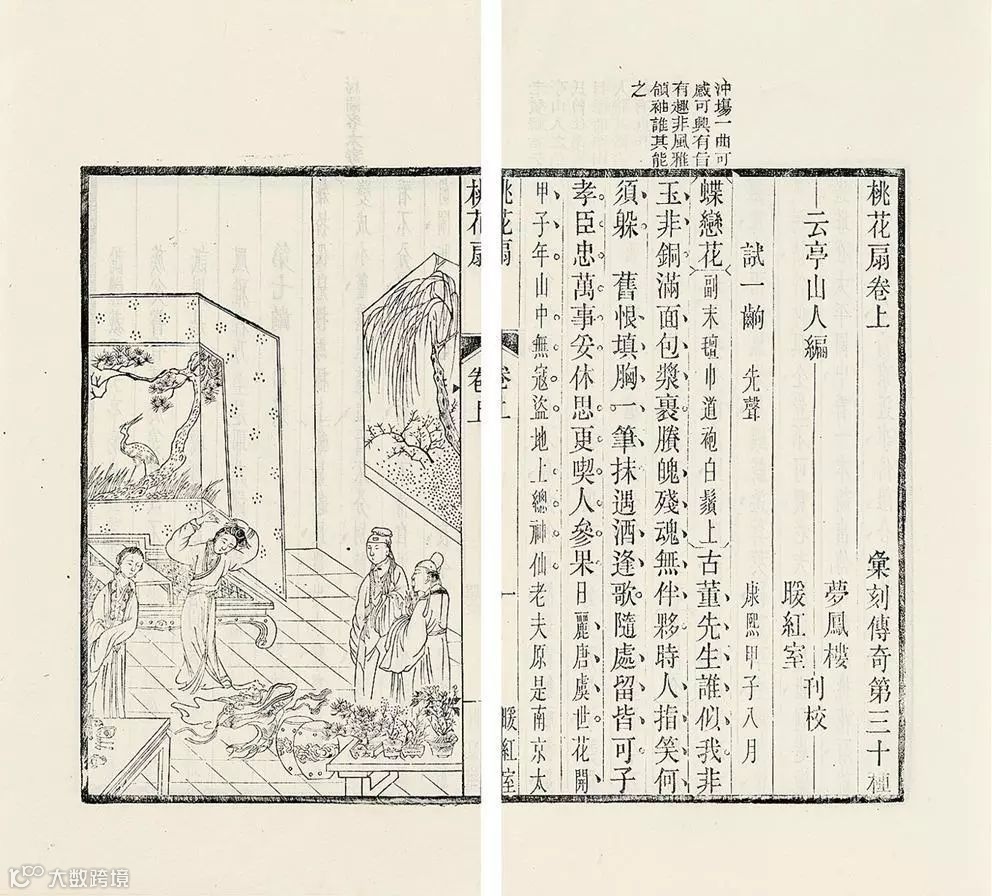 沖塲一曲可
感可興有旨
有趣非風雅
領袖誰其能
之
桃花扇卷上　彙刻傳奇第三十種
云亭山人編　夢鳳樓
暖紅室
刊校
試一齣　先聲　康熙甲子八月
蝶戀花副末氊巾道袍白鬚上古董先生誰似我非
玉非銅滿面包漿裹賸魄殘魂無伴夥時人指笑何
須躲　舊恨填胸一筆抹遇酒逢歌隨處留皆可子
孝臣忠萬事妥休思更喫人參果日麗唐虞世花開
甲子年山中無寇盜地上總神仙老夫原是南京太
桃花扇　卷上　一　暖紅室
桃花扇　卷上
大数跨境